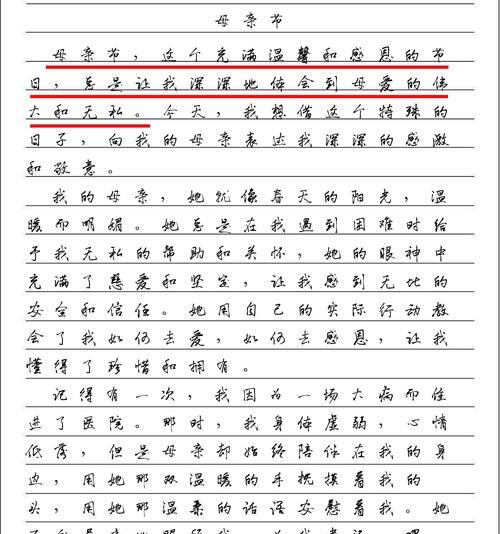 母亲节
母亲节，这个充满温馨和感恩的节
日，总是让我深深地体会到母爱的伟
大和无私。今天，我想借这个特殊的
日子，向我的母亲表达我深深的感激
和敬意。
我的母亲，她就像春天的阳光，温
暖而明媚。她总是在我遇到困难时给
予我无私的帮助和关怀，她的眼神中
充满了慈爱和坚定，让我感到无比的
安全和信任。她用自己的实际行动教
会了我如何去爱，如何去感恩，让我
懂得了珍惜和拥有。
记得有一次，我因为一场大病而住
进了医院。那时，我身体虚弱，心情
低落，但是母亲却始终陪伴在我的身
边，用她那双温暖的手抚摸着我的
头，用她那温柔的话语安慰着我。她